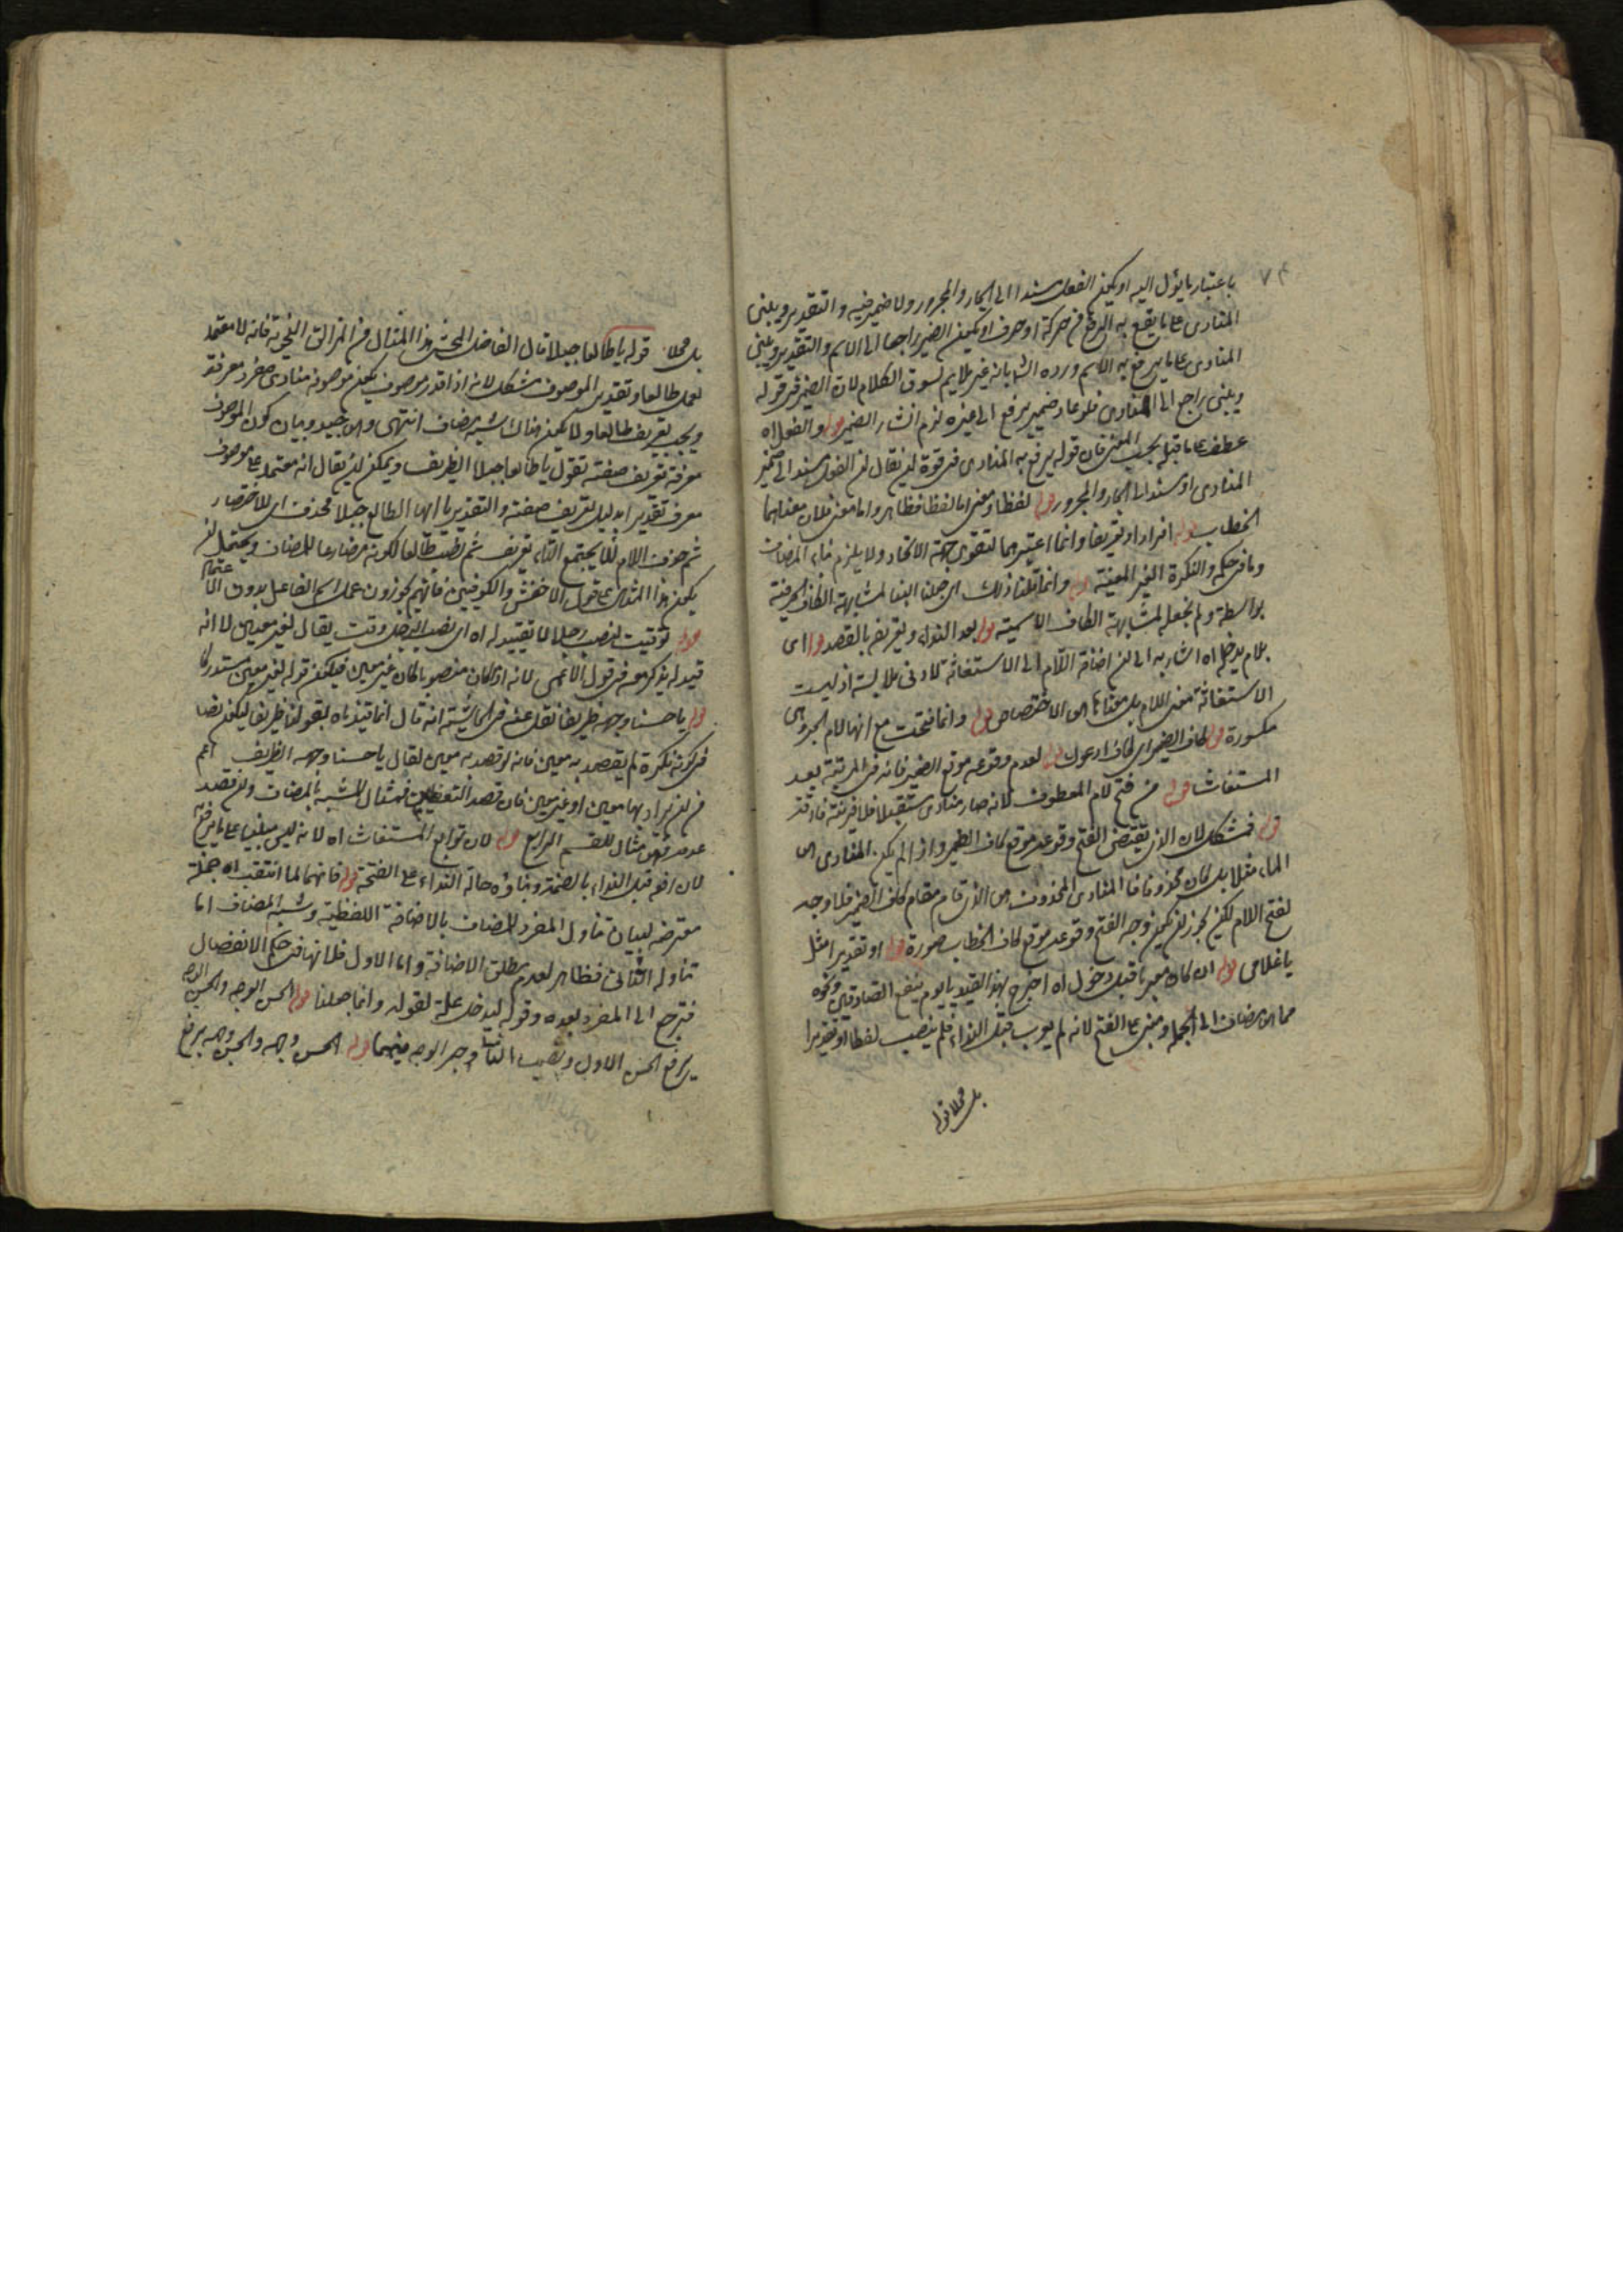 ٧٤
باعتبار ما يؤل اليه او يكون الفعل مسندا الى الجار والمجرور ولا ضمير فيه والتقدير ويبنى
المنادى على ما يقع به الرفع من حركة او حرف او يكون الضمير راجعا الى الاسم والتقدير ويبنى
المنادى على ما يرفع به الاسم ورده الش بانه غير ملايم لسوق الكلام لان الضمير فى قوله
ويبنى راجع الى المنادى فلو عاد ضمير يرفع الى غيره لزم انتشار الضمير قوله والفعل اه
عطف على ما قبله بحسب المعنى فان قوله يرفع به المنادى فى قوة ان يقال ان الفعل مسند الى ضمير
المنادى او مسند الى الجار والمجرور قوله لفظا ومعنى اما لفظا فظاهر واما معنى فلان معناهما
الخطاب قوله افرادا وتعريفا وانما اعتبرهما لتقوى جهة الاتحاد ولا يلزم بناء المضاف
وما فى حكمه والنكرة الغير المعينة قوله وانما قلنا ذلك اى جعلنا البنا لمشابهة الكاف الحرفية
بواسطة ولم نجعله لمشابهة الكاف الاسمية قوله بعد النداء وتعريفه بالقصد قوله اى
بلام يدخله اه اشار به الى ان اضافة اللام الى الاستغاثة لادنى ملابسة اذ ليست
الاستغاثة معنى اللام بل معناها الاختصاص قوله وانما فتحت مع انها لام الجر وهى
مكسورة قوله كاف الضمير اى كاف ادعوك قوله لعدم وقوعه موقع الضمير فانه فى المرتبة بعد
المستغاث قوله من فتح لام المعطوف لانه صار منادى مستقبلا فلا قرينة فارقة
قوله فمشكل لان الذى يقتضى الفتح وقوعه موقع كاف الضمير واذا لم يكن المنادى
الماء مثلا بل كان محذوفا فالمنادى المحذوف هو الذى قام مقام كاف الضمير فلا وجه
لفتح اللام لكن يجوز ان يكون وجه الفتح وقوعه موقع كاف الخطاب صورة قوله او تقديرا مثل
يا غلامى قوله ان كان معربا قبل دخول اه اخرج بهذا القيد يا يوم ينفع الصادقين ونحوه
مما اضيف الى الجملة ومبنى على الفتح لانه لم يعرب قبل النداء فلم ينصب لفظا او تقديرا
بل محلا قوله
بل محلا قوله يا طالعا جبلا قال الفاضل المحشى هذا المثال من المزالق النحوية فانه لا معتمد
لعمل طالعا وتقدير الموصوف مشكل لانه اذا قدر موصوف يكون موصوفه منادى مفرد معرفة
ويجب تعريف طالعا ولا يكون هناك شبه مضاف انتهى وبيان كون الموصوف
معرفة تعريف صفته تقول يا طالعا جبلا الظريف ويمكن ان يقال انه معتمد على موصوف
معرف تقديرا بدليل تعريف صفته والتقدير يا ايها الطالع جبلا فحذف اى للاختصار
ثم حذف اللام لئلا يجتمع التا تعريف ثم نصب طالعا لكونه مضارعا للمضاف ويحتمل ان
يكون هذا المثال على قول الاخفش والكوفيين فانهم يجوزون عمل اسم الفاعل بدون الاعتماد
قوله توقيت لنصب رجلا لا تقييد له اه اى نصب الرجل وقت يقال لغير معين لا انه
قيد له يذكر معه فى قول الاعمى لانه اذا كان منصوبا كان غير معين فيكون قوله لغير معين مستدركا
قوله يا حسنا وجهه ظريفا نقل عنه فى الحاشية انه قال انما قيدناه بقولنا ظريفا ليكون نصا
فى كونه نكرة لم يقصد به معين فانه لو قصد به معين لقال يا حسنا وجهه الظريف اعم
من ان يراد بها معين او غير معين فان قصد التعيين فمثال للشبه بالمضاف وان قصد
عدمه فهو مثال للقسم الرابع قوله لان توابع المستغاث اه لانه ليس مبنيا على ما يرفع
لان رفعه قبل النداء بالضمة وبناؤه حالة النداء على الفتحة قوله فانهما لما انتفت اه جملة
معترضة لبيان تناول المفرد للمضاف بالاضافة اللفظية وشبه المضاف اما
تناوله الثانى فظاهر لعدم مطلق الاضافة واما الاول فلانها فى حكم الانفصال
فترجع الى المفرد بعده وقوله ليدخل علة لقوله وانما جعلنا قوله الحسن الوجه والحسن الوجه
برفع الحسن الاول ونصب الثانى وجر الوجه فيهما قوله الحسن وجهه والحسن وجهه برفع